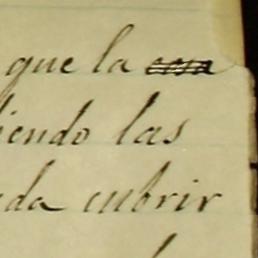 que la
iendo las
da cubrir